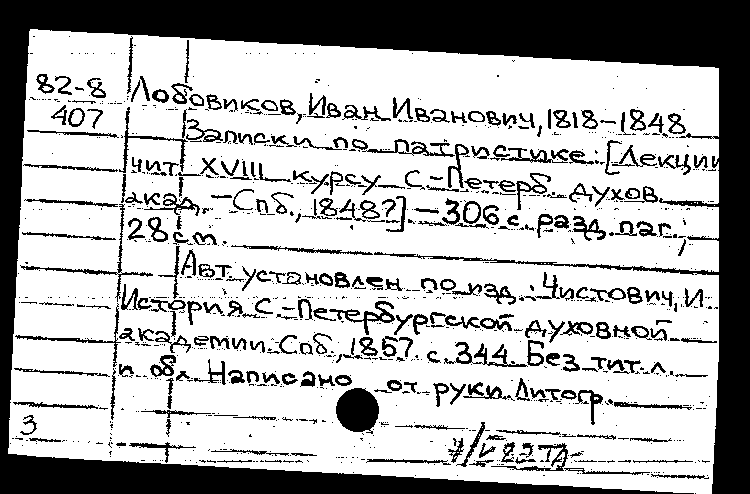 82-8
407
Лобовиков, Иван Иванович, 1818-1848.
Записки по патристике: [Лекции
чит. XVIII курсу С.-Петерб. духов.
акад. - Спб., 1848?]. - 306 с. разд. паг.;
28 см.
Авт. установлен по изд.: Чистович, И.
История С.-Петербургской духовной
академии. Спб., 1857. с. 344. Без тит. л.
и обл. Написано от руки. Литогр.
3